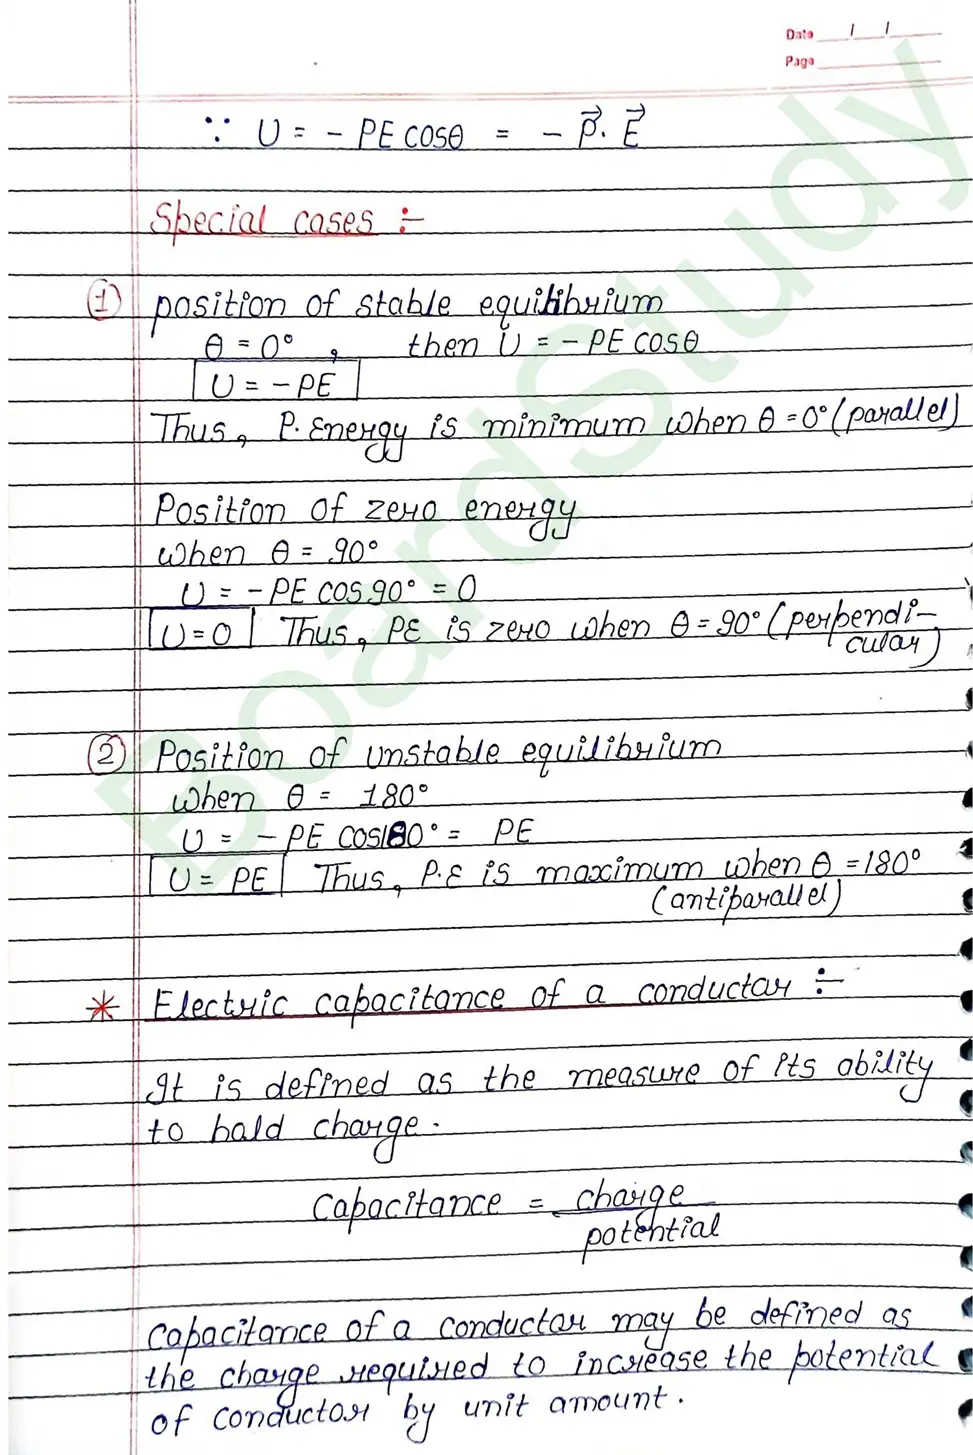 Date / /
Page
∵ U = - PE cosθ = - P⃗. E⃗
Special cases :-
① position of stable equilibrium
θ = 0° , then U = - PE cosθ
U = - PE
Thus, P. Energy is minimum when θ = 0° (parallel)
Position of zero energy
when θ = 90°
U = - PE cos 90° = 0
U = 0 Thus, PE is zero when θ = 90° (perpendi-
cular)
② Position of unstable equilibrium
when θ = 180°
U = - PE cos180° = PE
U = PE Thus, P.E is maximum when θ = 180°
(antiparallel)
* Electric capacitance of a conductar :-
It is defined as the measure of its ability
to hald charge.
Capacitance = charge
potential
Capacitance of a conductor may be defined as
the charge required to increase the potential
of conductor by unit amount.
BoardStudy